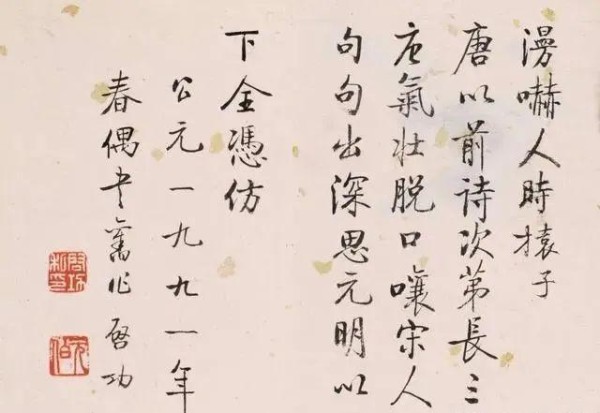 漫嚇人時猿子
唐以前诗次第長三
唐氣壯脱口嚷宋人
句句出深思元明以
下全憑仿
公元一九九一年
春偶書舊作啓功